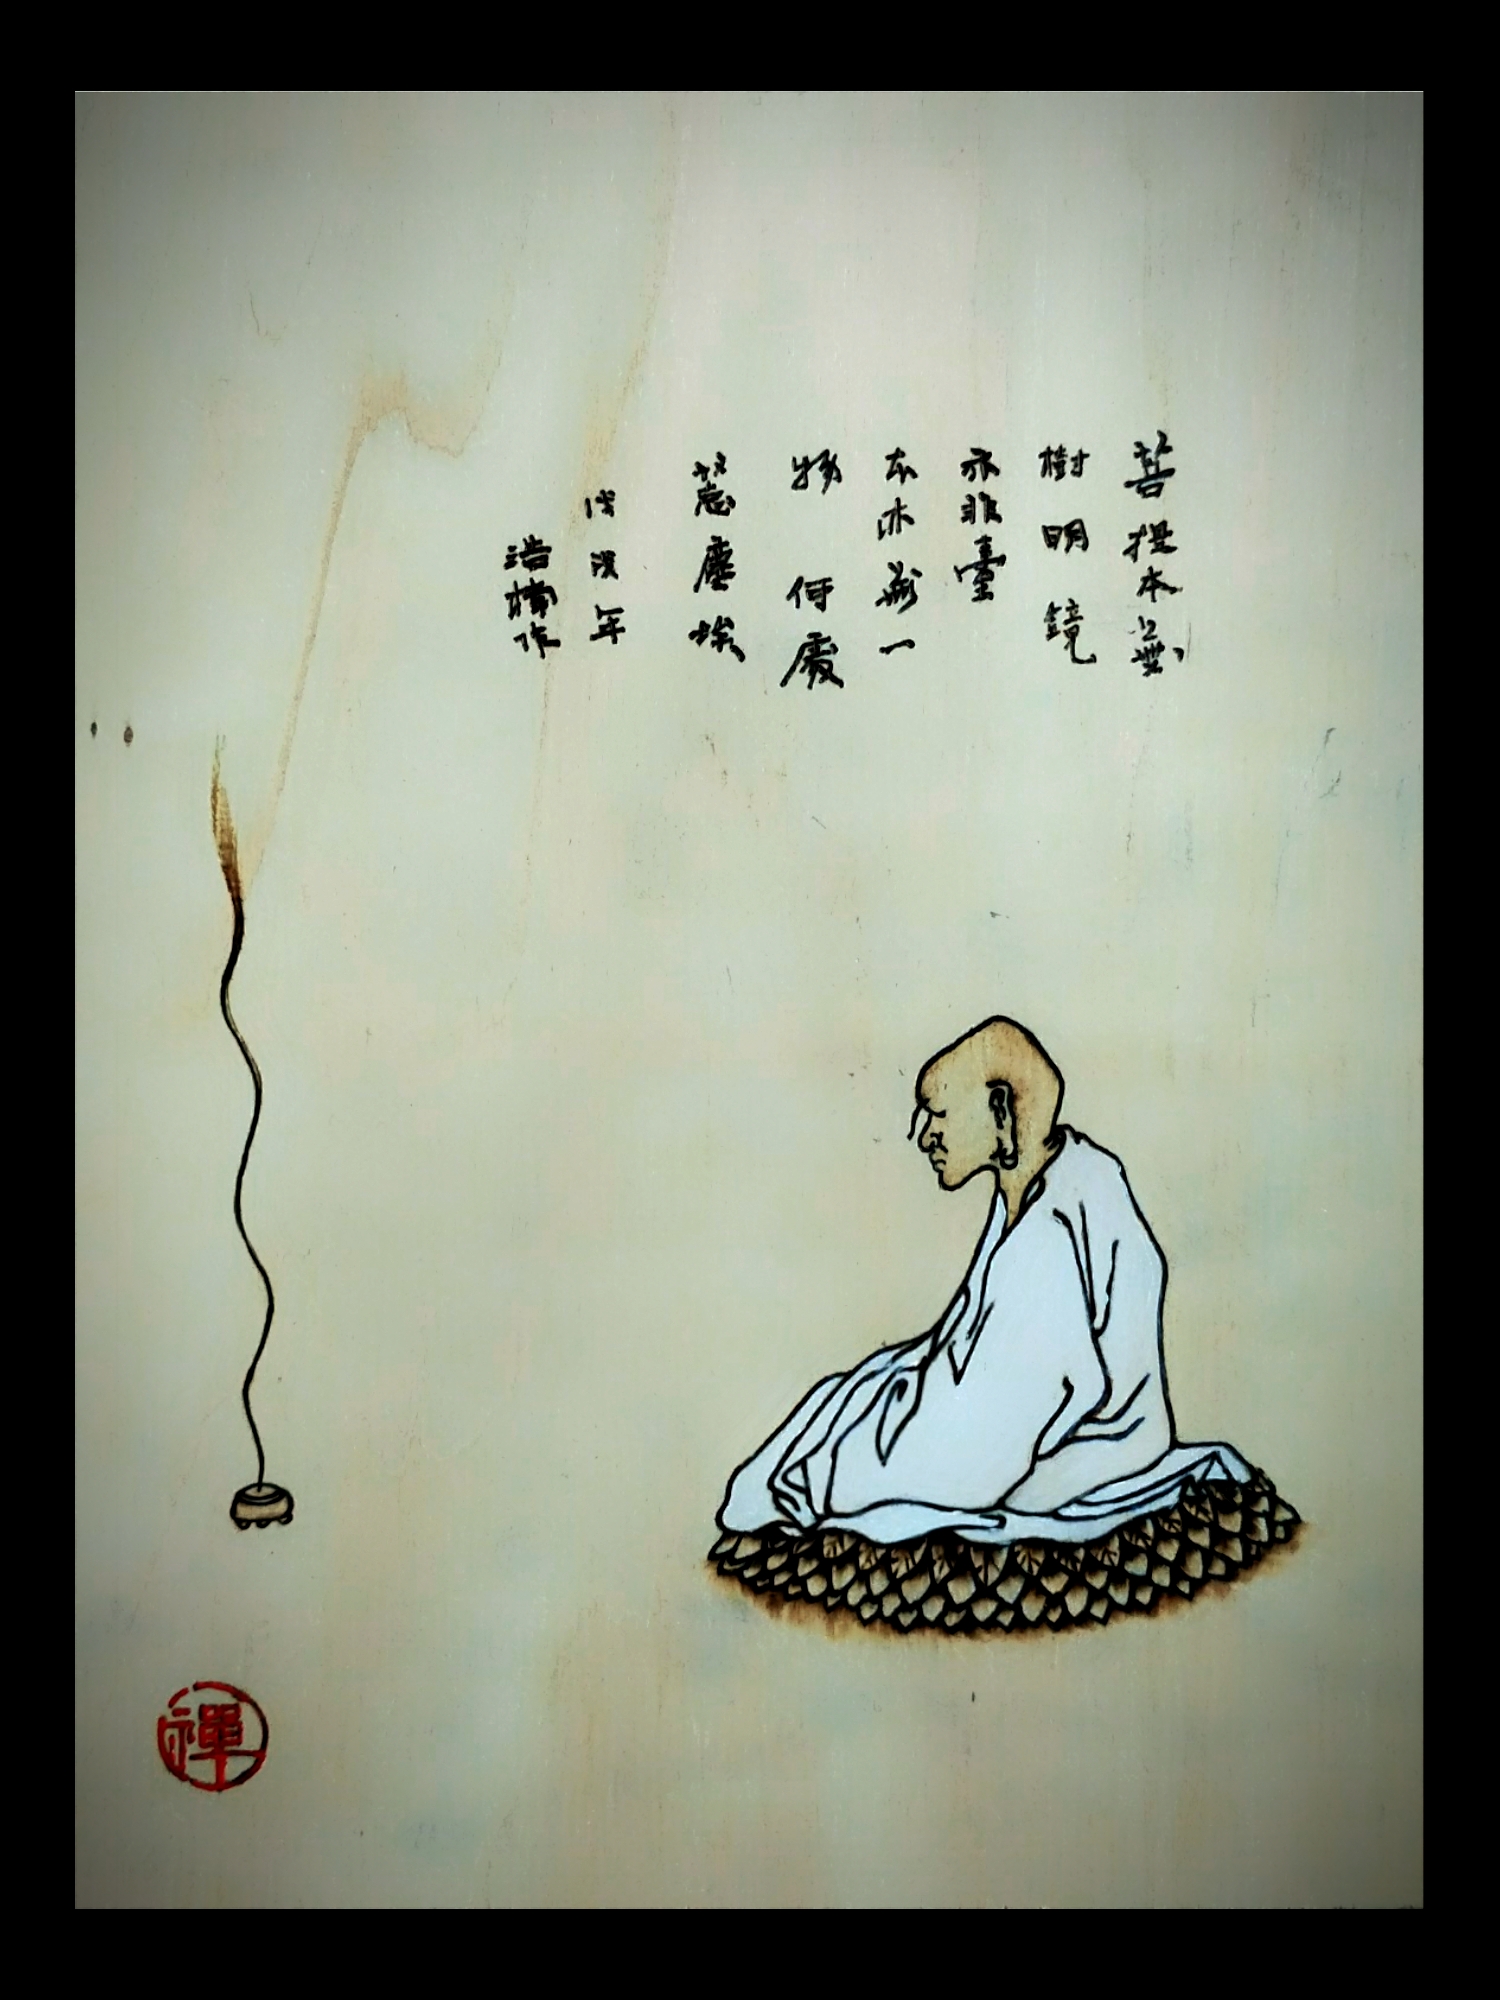 菩提本無
樹明鏡
亦非臺
本來無一
物何處
惹塵埃
戊戌年
浩楠作
禪